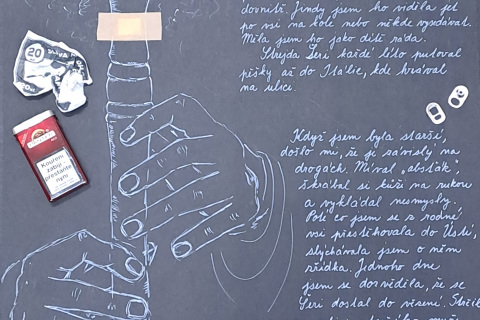 dovnitř. Jindy jsem ho viděla jet
po vsi na kole nebo někde vysedávat.
Měla jsem ho jako dítě ráda.
Strejda Šeri každé léto putoval
pěšky až do Itálie, kde hrával
na ulici.
Když jsem byla starší,
došlo mi, že je závislý na
drogách. Míval „absťák“,
škrábal si kůži na rukou
a vykládal nesmysly.
Poté co jsem se z rodné
vsi přestěhovala do Ústí,
slýchávala jsem o něm
zřídka. Jednoho dne
jsem se dozvěděla, že se
Šeri dostal do vězení.
20
Kouření
zabíjí
přestaňte
nyní